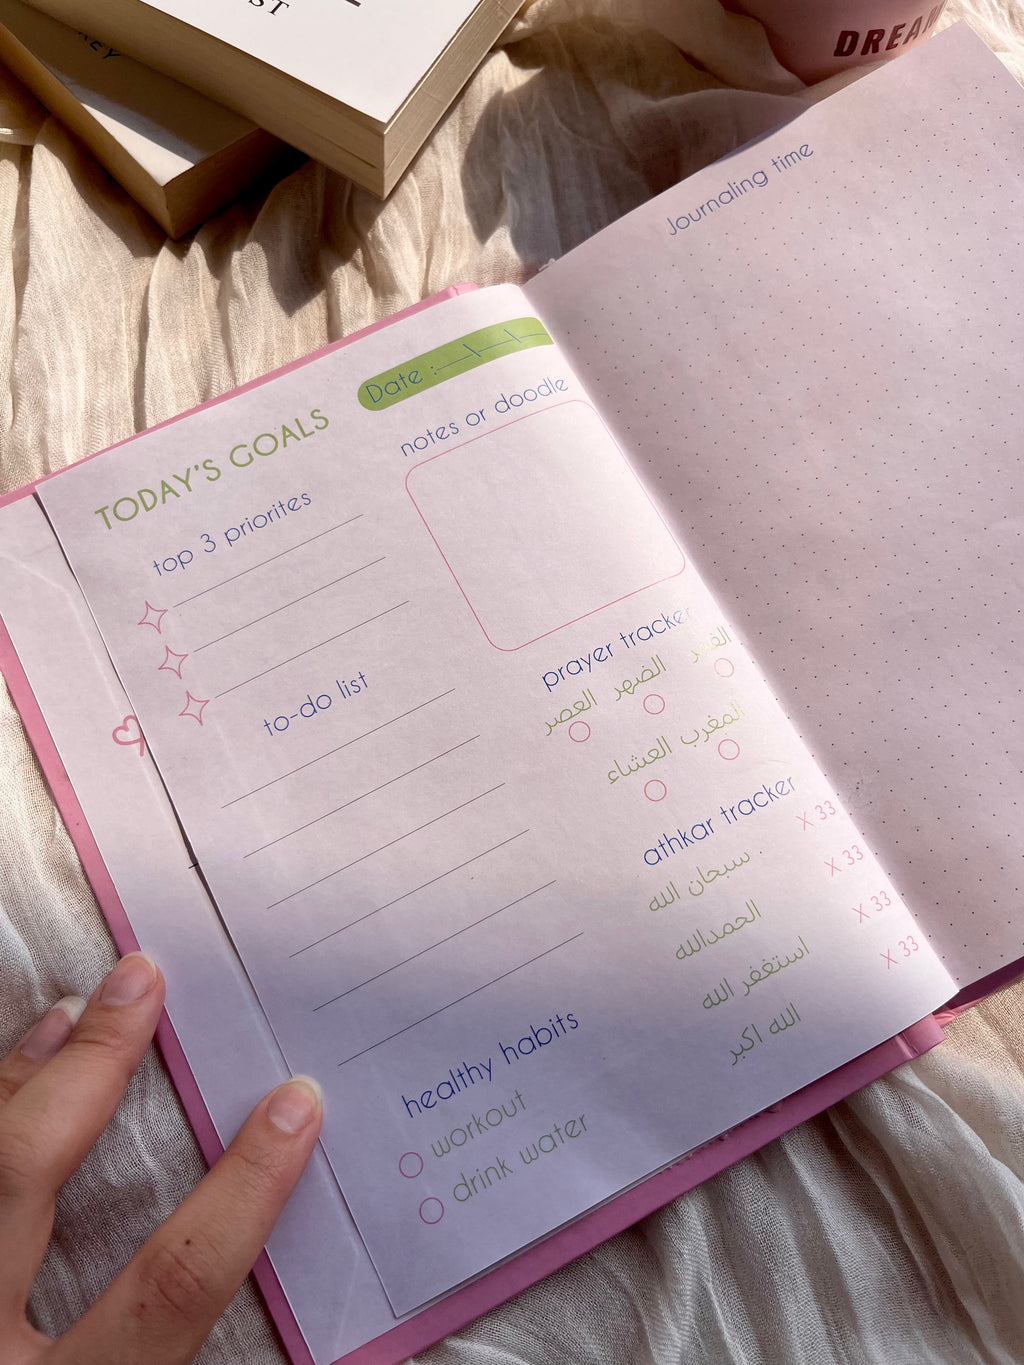 ST
KEY
DREAM
Journaling time
Date :__\__\__
TODAY'S GOALS
notes or doodle
top 3 priorites
to-do list
prayer tracker
الفجر الضهر العصر
المغرب العشاء
athkar tracker
سبحان الله X 33
الحمدالله X 33
استغفر الله X 33
الله اكبر X 33
healthy habits
workout
drink water